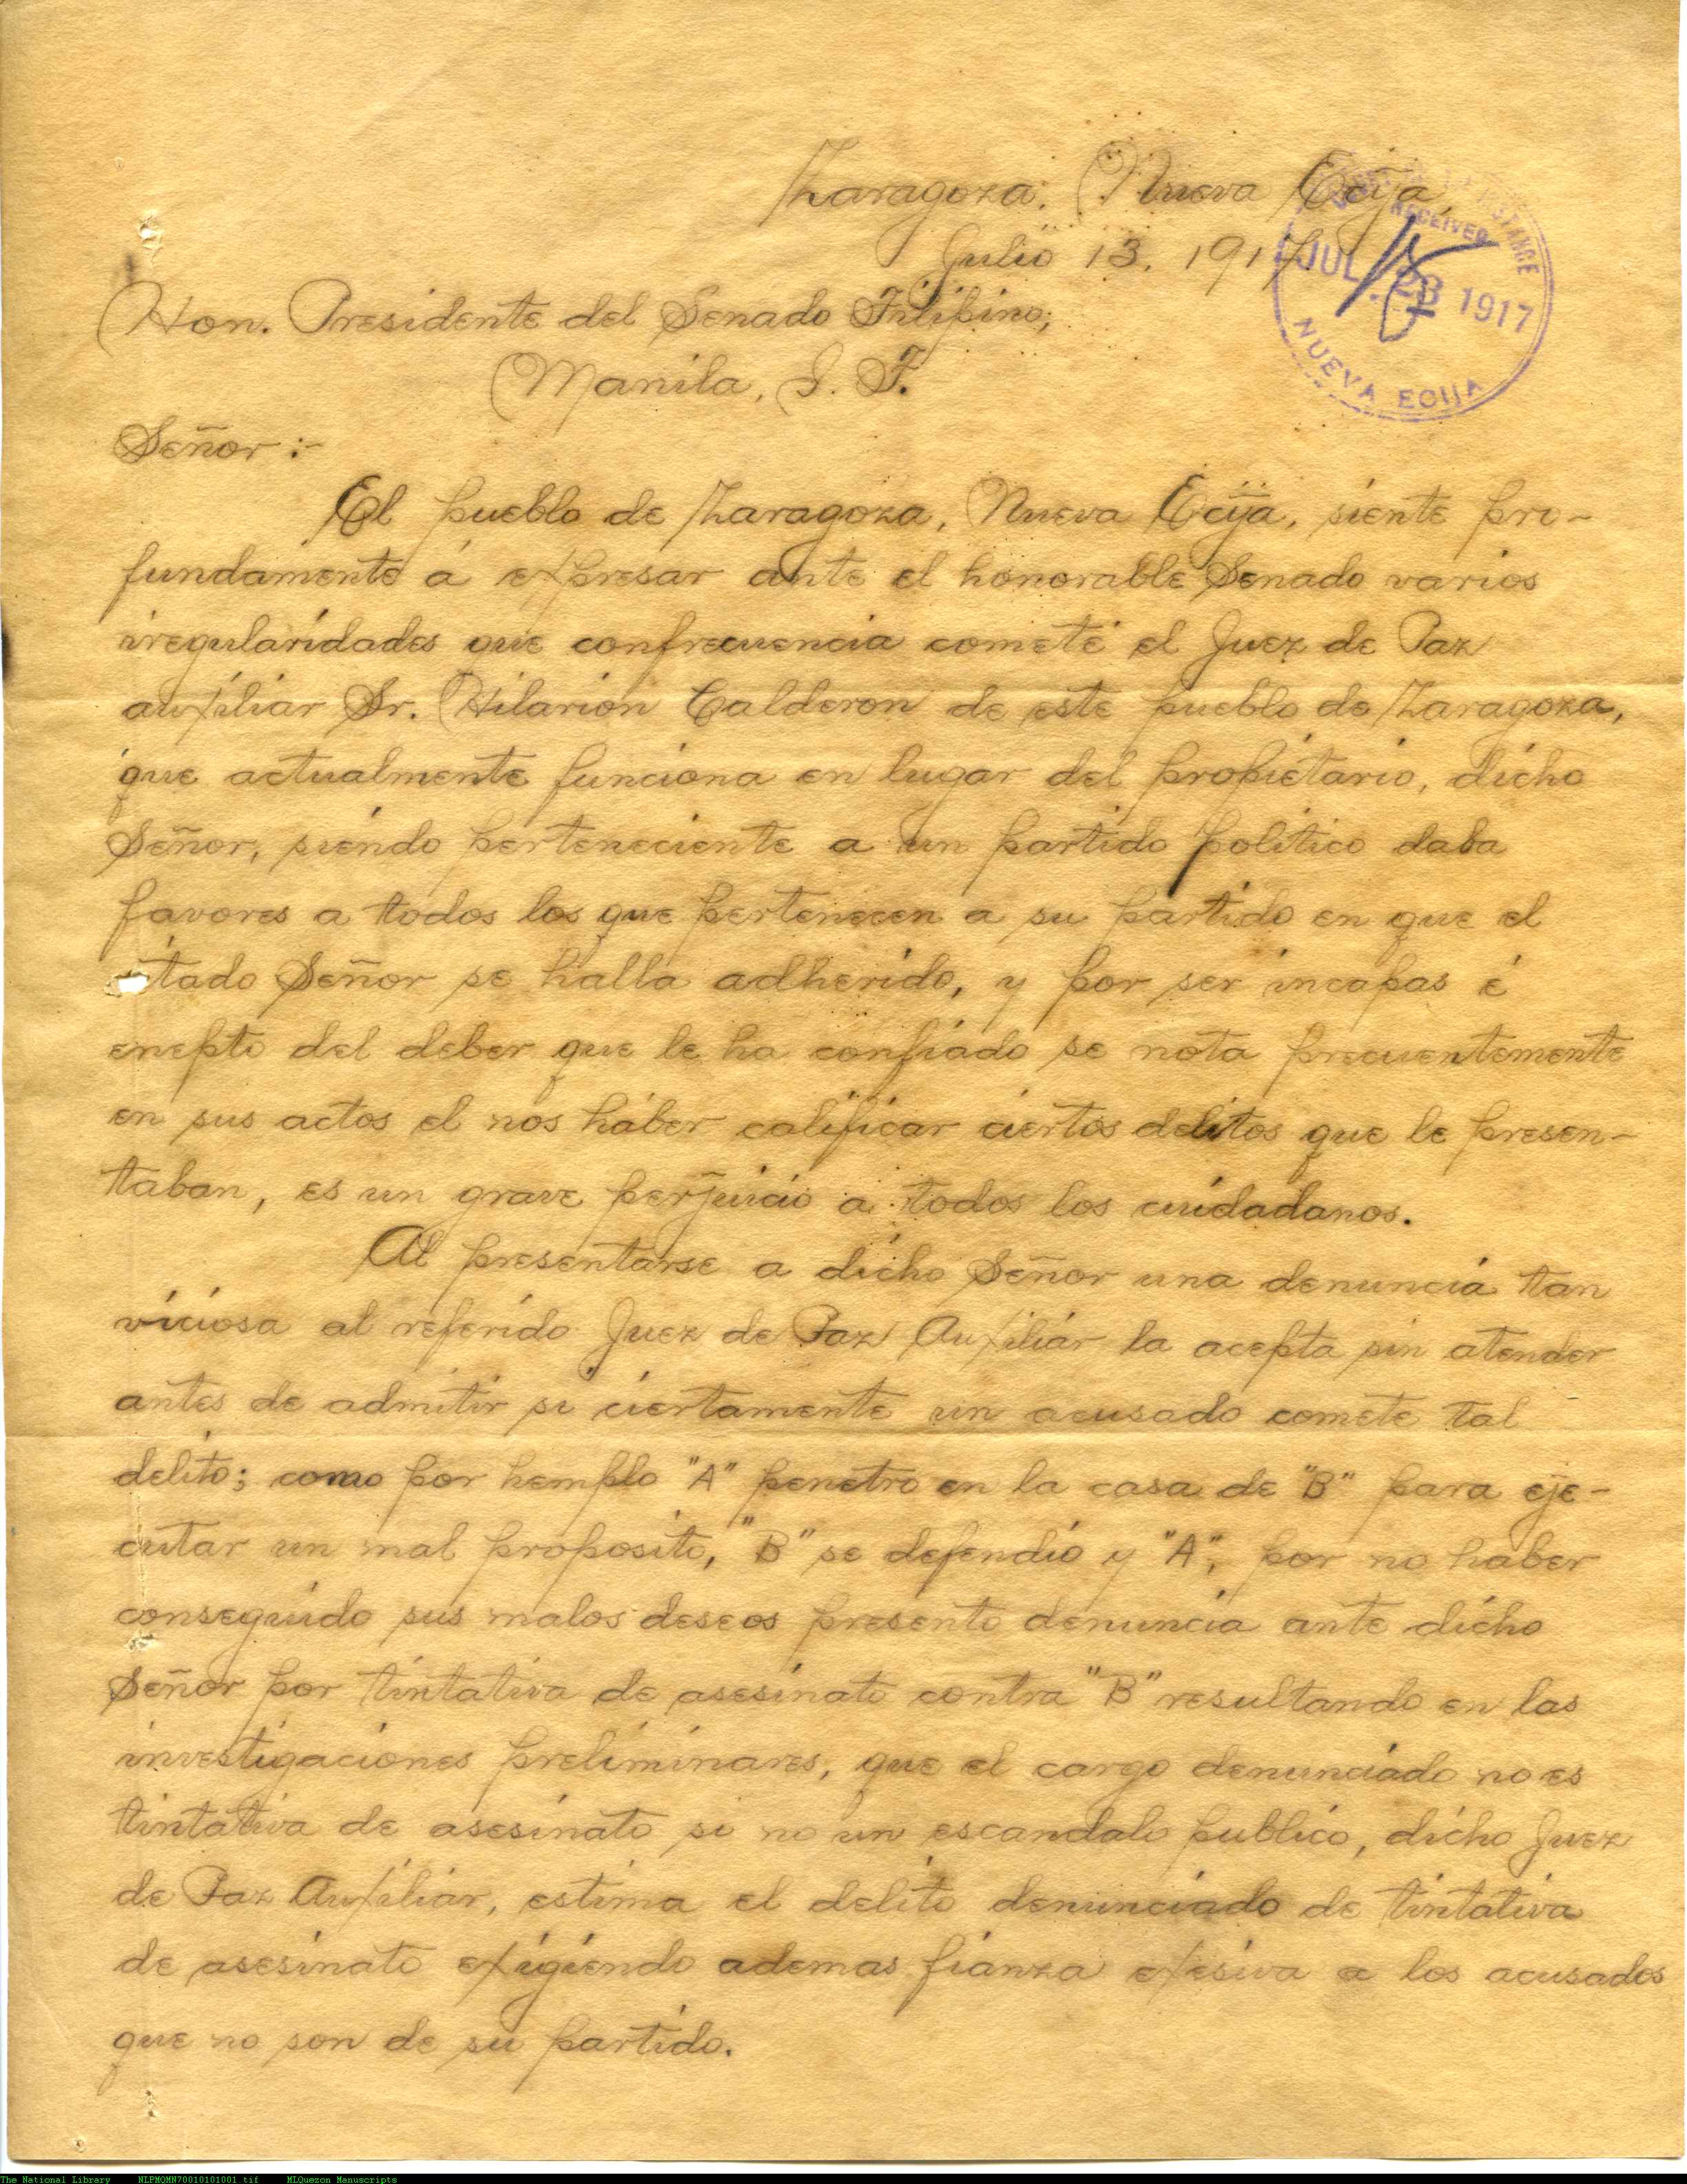 Zaragoza, Nueva Ecija,
Julio 13, 1917.
RECEIVED
JUL. 23 1917
NUEVA ECIJA
Hon. Presidente del Senado Filipino;
Manila, I. F.
Señor :-
El pueblo de Zaragoza, Nueva Ecija, siente pro-
fundamente á expresar ante el honorable Senado varios
iregularidades que confrecuencia cometé el Juez de Paz
auxiliar Sr. Hilarion Calderon de este pueblo de Zaragoza,
que actualmente funciona en lugar del propietario, dicho
Señor, siendo perteneciente a un partido politico daba
favores a todos los que pertenecen a su partido en que el
citado Señor se halla adherido, y por ser incapas é
enepto del deber que le ha confiado se nota frecuentemente
en sus actos el nos haber calificar ciertos delitos que le presen-
taban, es un grave perjuicio a todos los cuidadanos.
Al presentarse a dicho Señor una denuncia tan
viciosa al referido Juez de Paz Auxiliar la acepta sin atender
antes de admitir si ciertamente un acusado comete tal
delito; como por hemplo "A" penetro en la casa de "B" para eje-
cutar un mal proposito, "B" se defendio y "A", por no haber
conseguido sus malos deseos presento denuncia ante dicho
Señor por tintativa de asesinato contra "B" resultando en las
investigaciones preliminares, que el cargo denunciado no es
tintativa de asesinato si no un escandalo publico, dicho Juez
de Paz Auxiliar, estima el delito denunciado de tintativa
de asesinato exigiendo ademas fianza exesiva a los acusados
que no son de su partido.
The National Library NLPMQMN70010101001.tif MLQuezon Manuscripts